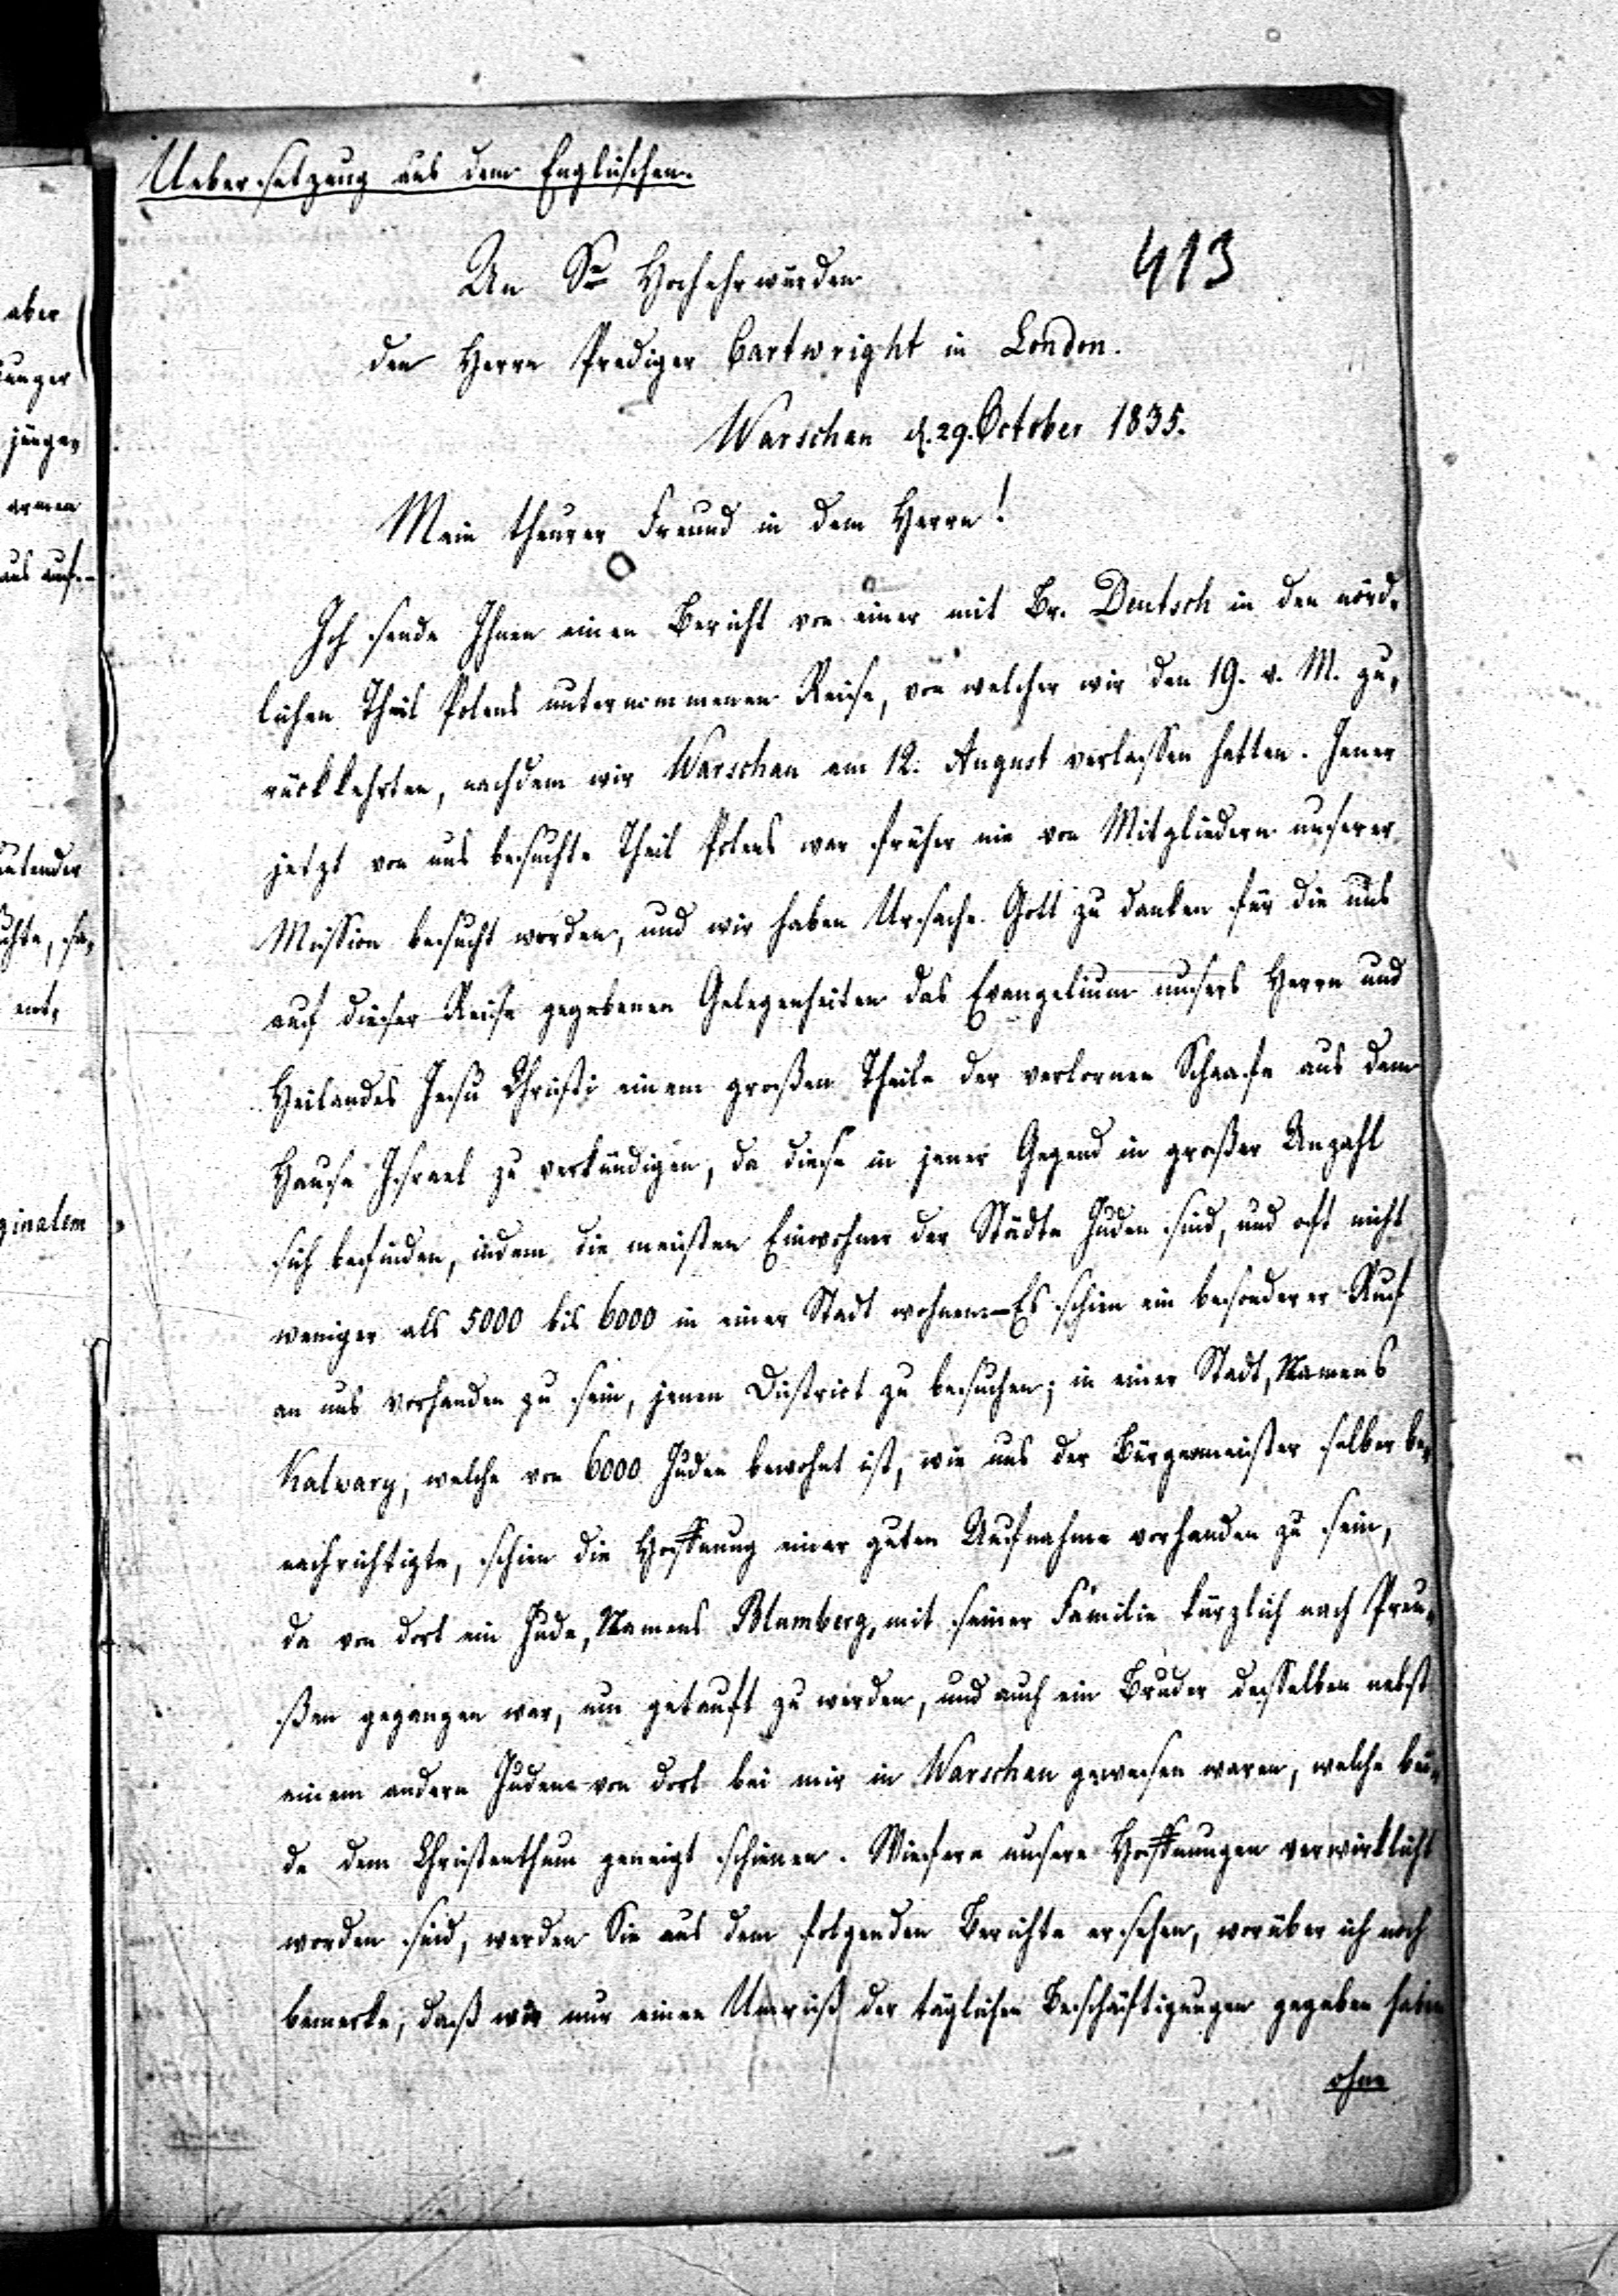 Uebersetzung aus dem Englischen.
413
An Sr Hochehrwürden
den Herrn Prediger Cartwright in London.
Warschau d. 29. October 1835.
Mein theurer Freund in dem Herrn!
Ich sende Ihnen einen Bericht von einer mit Br. Deutsch in den nörd-
lichen Theil Polens unternommenen Reise, von welcher wir den 19. v. M. zu-
rückkehrten, nachdem wir Warschau am 12. August verlassen hatten. Jener
jetzt von uns besuchte Theil Polens war früher nie von Mitgliedern unserer
Mission besucht worden, und wir haben Ursache Gott zu danken für die uns
auf dieser Reise gegebenen Gelegenheiten das Evangelium unsers Herrn und
Heilandes Jesu Christi einem großen Theile der verlornen Schaafe aus dem
Hause Israel zu verkündigen, da diese in jener Gegend in großer Anzahl
sich befinden, indem die meisten Einwohner der Städte Juden sind, und oft nicht
weniger als 5000 bis 6000 in einer Stadt wohnen. – Es schien ein besonderer Ruf
an uns vorhanden zu sein, jenen District zu besuchen; in einer Stadt, Namens
Kalwary, welche von 6000 Juden bewohnt ist, wie uns der Bürgermeister selber be-
nachrichtigte, schien die Hoffnung einer guten Aufnahme vorhanden zu sein,
da von dort ein Jude, Namens Blumberg, mit seiner Familie kürzlich nach Preu-
ßen gegangen war, um getauft zu werden, und auch ein Bruder desselben nebst
einem andern Juden von dort bei mir in Warschau gewesen waren, welche bei-
de dem Christenthum geneigt schienen. Wiefern unsere Hoffnungen verwirklicht
worden sind, werden Sie aus dem folgenden Berichte ersehen, worüber ich noch
bemerke, daß wir nur einen Umriß der täglichen Beschäftigungen gegeben haben
ohne
aber
junger
armen
aus auf-
ginalem